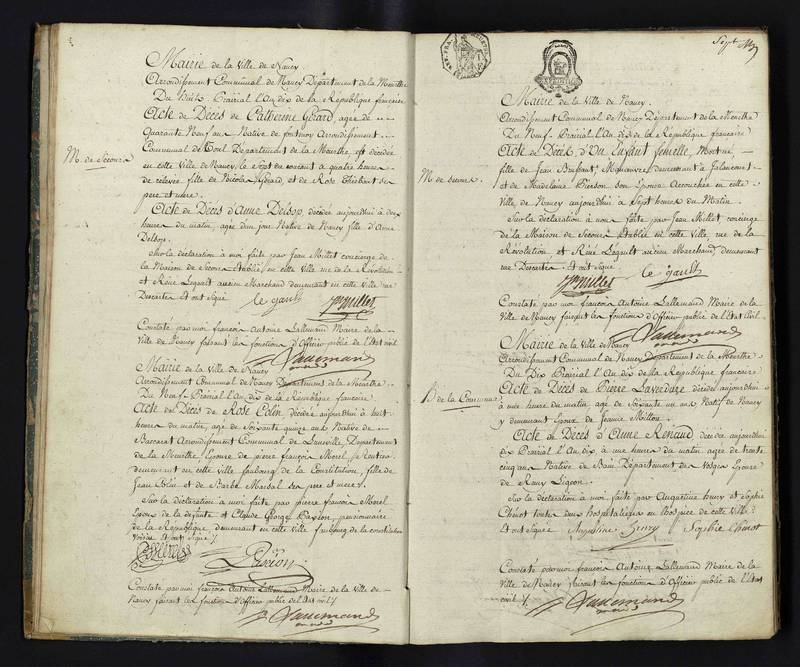 Mairie de la Ville de Nancy.
Arrondissement Communal de Nancy Département de la Meurthe
Du Huit Prairial l'An dix de la République française
Acte de Décès de Catherine Gérard, agée de
Quarante Neuf ans Native de fontenoy Arrondissement
Communal de Toul Département de la Meurthe, est décédée
en cette Ville de Nancy, le Sept du courant à quatre heures
de relevée fille de Nicolas Gérard, et de Rose
père et mere.
M. de Secours
Acte de Décès d'Anne Delsop, décédée aujourd'hui à dix
heures du matin, agée d'un jour Native de Nancy fille d'Anne
Delsop.
Sur la déclaration à moi faite par Jean Millet concierge de
la Maison de Secours Etablie en cette Ville rue de la Révolution
et René Legault ancien Marchand demeurant en cette Ville rue
Descartes Et ont Signé
le gault JMillet
Constaté par moi françois Antoine Lallemand Maire de la
Ville de Nancy faisant les fonctions d'Officier public de l'Etat civil
Lallemand
Mairie de la Ville de Nancy
Arrondissement Communal de Nancy Département de la Meurthe.
Du Neuf Prairial l'An dix de la République françoise
Acte de Décès de Rose Colin décédée aujourd'hui à huit
heures du matin, agée de Soixante quinze ans Native de
Baccarat Arrondissement Communal de Lunéville, Département
de la Meurthe Epouse de pierre françois Morel
demeurant en cette ville faubourg de la Constitution, fille de
Jean Colin et de Barbe Marchal ses père et mere.
Sur la déclaration à moi faite par pierre françois Morel
Epoux de la défunte et Claude George pensionnaire
de la République demeurant en cette Ville faubourg de la constitution
voisins Et ont Signé
Constaté par moi françois Antoine Lallemand Maire de la Ville de
Nancy, faisant les fonctions d'Officier public de l'Etat civil
Lallemand
Sept
Mairie de la Ville de Nancy.
Arrondissement Communal de Nancy Département de la Meurthe
Du Neuf Prairial l'An dix de la République française
Acte de Décès, d'Un Enfant femelle, Mort né
M. de secours
fille de Jean Manœuvre demeurant à Jalaucourt
et de Madelaine Pierson son Epouse Accouchée en cette
Ville, de Nancy aujourd'hui à Sept heures du Matin.
Sur la déclaration à nous faite par Jean Millet concierge
de la Maison de Secours Etablie en cette Ville, rue de la
Révolution, et René Legault ancien Marchand demeurant
rue Descartes, Et ont signé
JMillet le gault
Constaté par moi françois Antoine Lallemand Maire de la
Ville de Nancy faisant les fonctions d'Officier public de l'Etat Civil.
Lallemand
Mairie de la Ville de Nancy
Arrondissement Communal de Nancy Département de la Meurthe
Du Dix Prairial l'An dix de la République française
Acte de Décès de Pierre Laverdure décédé aujourd'hui
de la Commune
à une heure du matin, agé de Soixante un ans Natif de Nancy
y demeurant Epoux de Jeanne Mitton.
Acte de Décès d'Anne Renaud décédée aujourd'hui
dix Prairial l'An dix à une heure du matin agée de trente
cinq ans Native de Département des Vosges Epouse
de Remy
Sur la déclaration à moi faite par Augustine hury et Sophie
Chinot toutes deux hospitalières en l'hospice de cette Ville
Et ont Signées Augustine hury Sophie Chinot
Constaté par moi françois Antoine Lallemand Maire de la
Ville de Nancy faisant les fonctions d'Officier public de l'Etat
civil
Lallemand